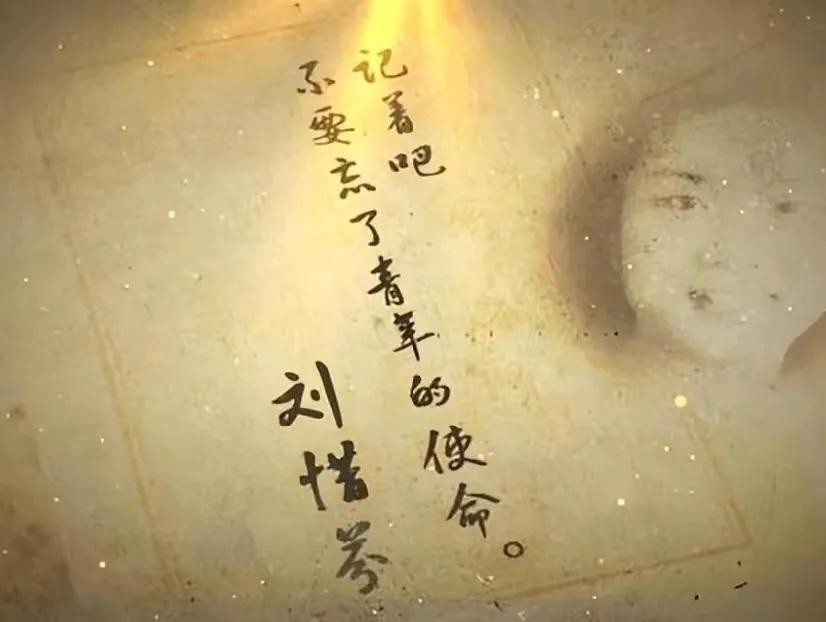 记着吧
不要忘了青年的使命。
刘惜芬